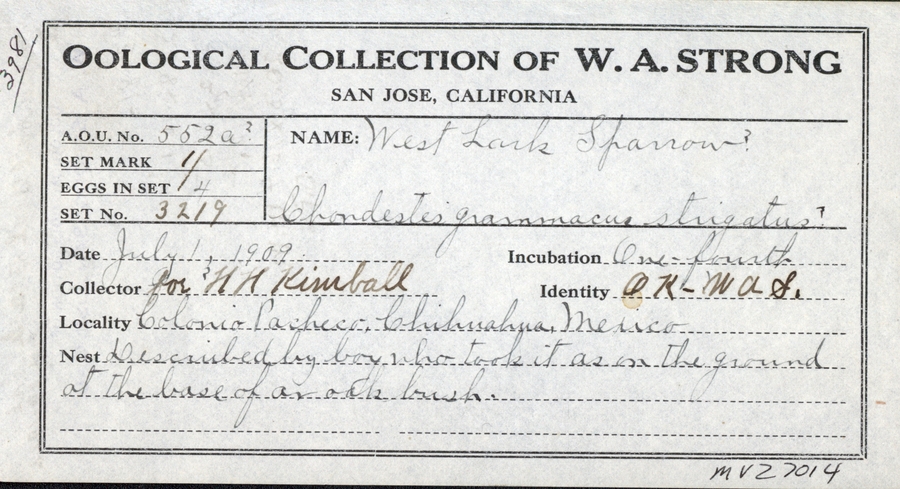 3981
OOLOGICAL COLLECTION OF W. A. STRONG
SAN JOSE, CALIFORNIA
A.O.U. No. 552a?
NAME: West Lark Sparrow?
SET MARK 1/
EGGS IN SET /4
SET No. 3219
Chondestes grammacus strigatus?
Date July 1, 1909.
Incubation One-fourth
Collector for? H H Kimball
Identity OK - W A S.
Locality Colonia Pacheco, Chihuahua, Mexico
Nest Described by boy who took it as on the ground
at the base of an oak bush.
MVZ 7014